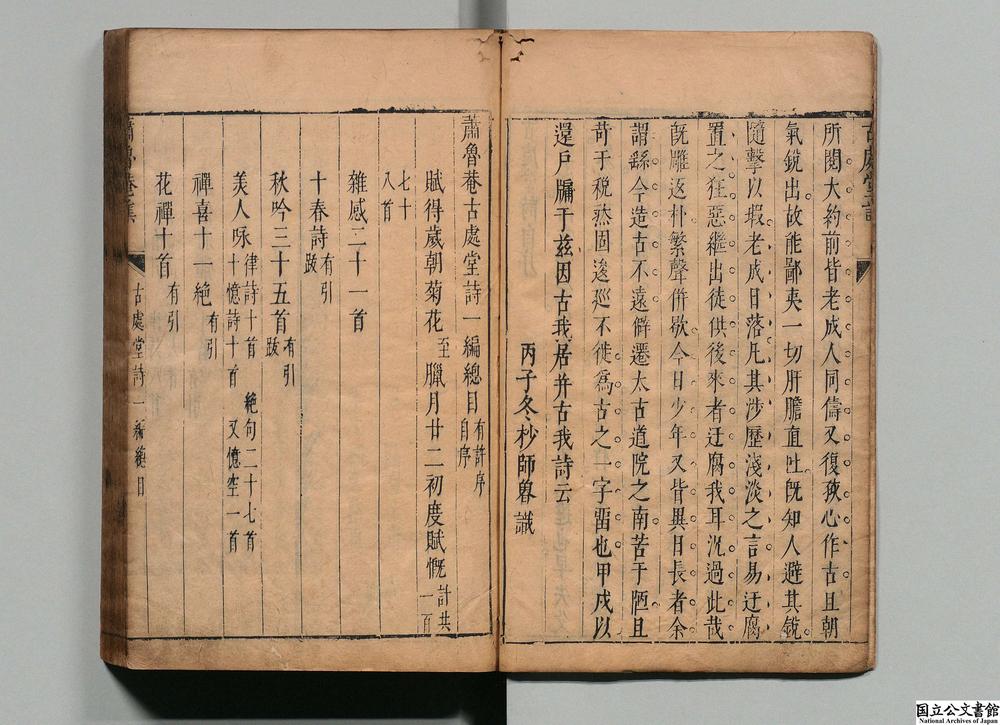 所閱大約前皆老成人同儔又復孩心作古且朝
氣銳出故能鄙夷一切肝膽直吐旣知人避其銳
隨擊以瑕老成日落凡其涉歷淺淡之言易迂腐
置之狂惡繼出徒供後來者迂腐我耳沉過此哉
旣雕返朴繁聲倂歇今日少年又皆異日長者余
謂繇今造古不遠僻遷太古道院之南苦于陋且
苛于稅然固逡廵不徙爲古之一字畱也甲戌以
還戸牖于兹因古我居幷古我詩云
丙子冬杪師魯識
蕭魯菴古處堂詩一編總目有許序自序
賦得歲朝菊花至臘月廿二初度賦慨計共一百
七十八首
雜感二十一首
十春詩有引跋
秋吟三十五首有引跋
美人咏律詩十首絶句二十七首十憶詩十首又憶空一首
禪喜十一絶有引
花禪十首有引
古處堂詩一編總目
國立公文書館
National Archives of Japan